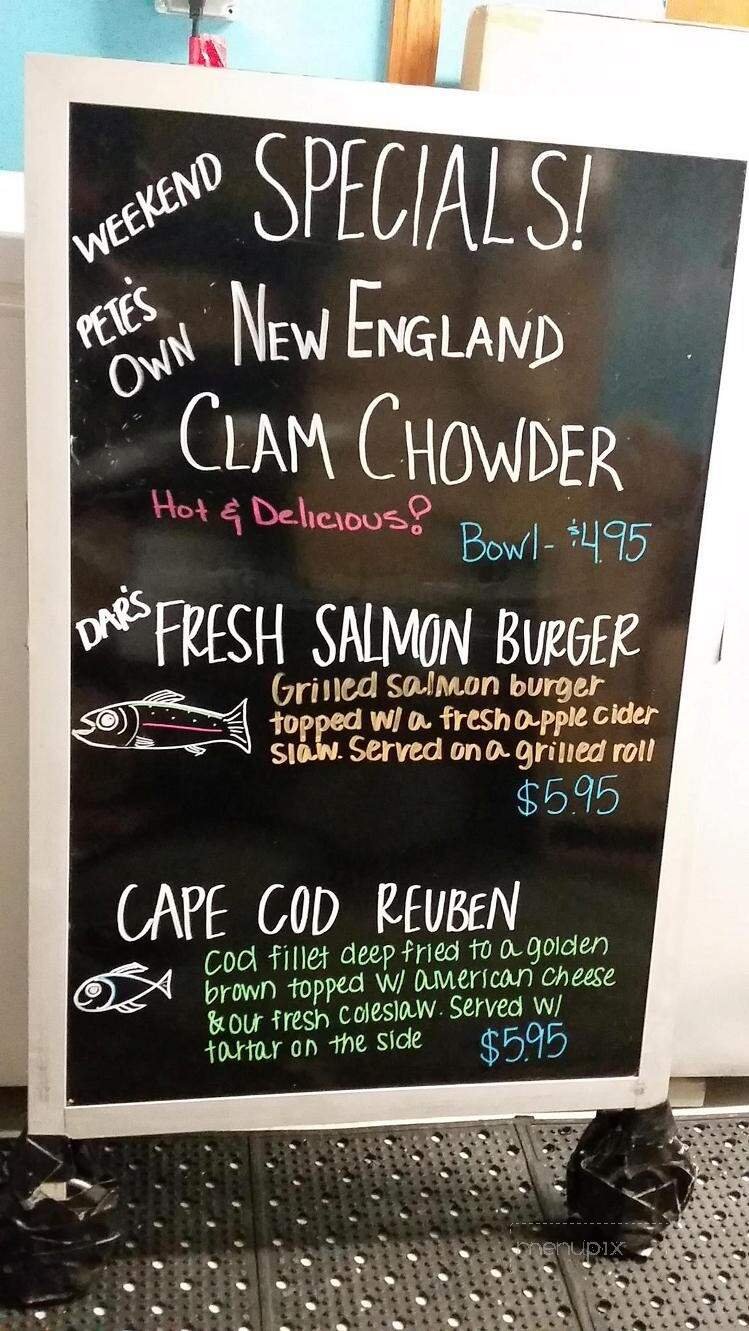 WEEKEND SPECIALS!
PETE'S
OWN
NEW ENGLAND
CLAM CHOWDER
Hot & Delicious!
Bowl- $4.95
DAR'S FRESH SALMON BURGER
Grilled salmon burger
topped w/ a fresh apple cider
slaw. Served on a grilled roll
$5.95
CAPE COD REUBEN
Cod fillet deep fried to a golden
brown topped w/ american cheese
& our fresh coleslaw. Served w/
tartar on the side $5.95
menupix